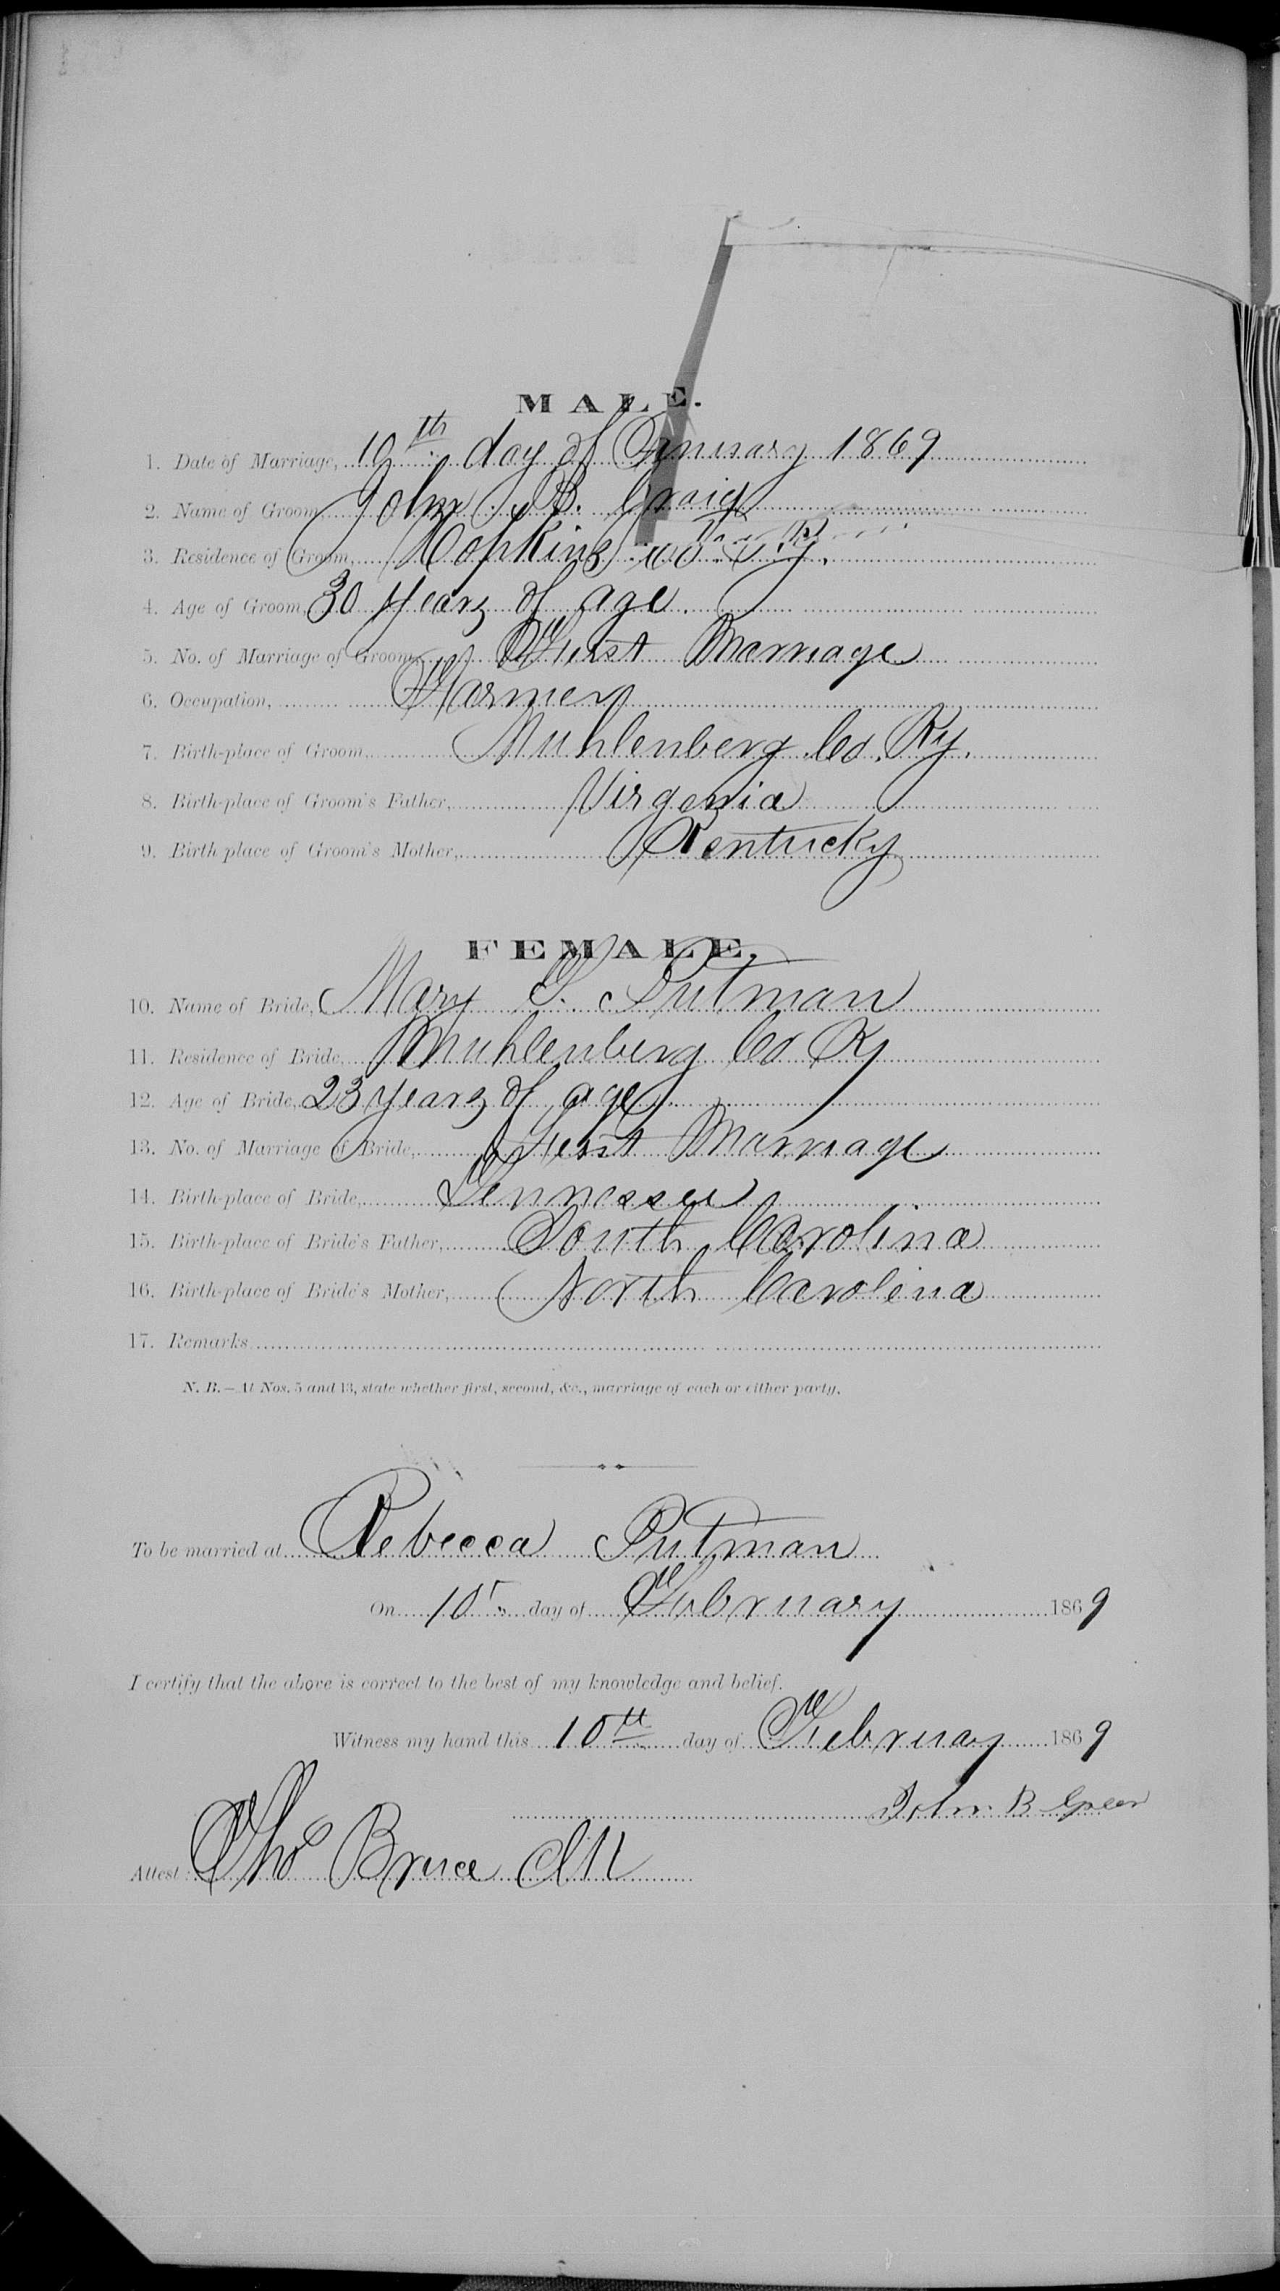 MALE.
1. Date of Marriage, 10th day of January 1869
2. Name of Groom, John B. Craig
3. Residence of Groom, Hopkins Co Ky.
4. Age of Groom, 30 years of age.
5. No. of Marriage of Groom, First Marriage
6. Occupation, Farmer
7. Birth-place of Groom, Muhlenberg Co. Ky.
8. Birth-place of Groom's Father, Virginia
9. Birth-place of Groom's Mother, Kentucky
FEMALE.
10. Name of Bride, Mary S. Putman
11. Residence of Bride, Muhlenberg Co Ky
12. Age of Bride, 23 years of age.
13. No. of Marriage of Bride, First Marriage
14. Birth-place of Bride, Tennessee
15. Birth-place of Bride's Father, South Carolina
16. Birth-place of Bride's Mother, North Carolina
17. Remarks
N. B.—At Nos. 5 and 13, state whether first, second, &c., marriage of each or either party.
To be married at Rebecca Putman
On 10th day of February 1869
I certify that the above is correct to the best of my knowledge and belief.
Witness my hand this 10th day of February 1869
John B
Attest: Tho Bruce Clk